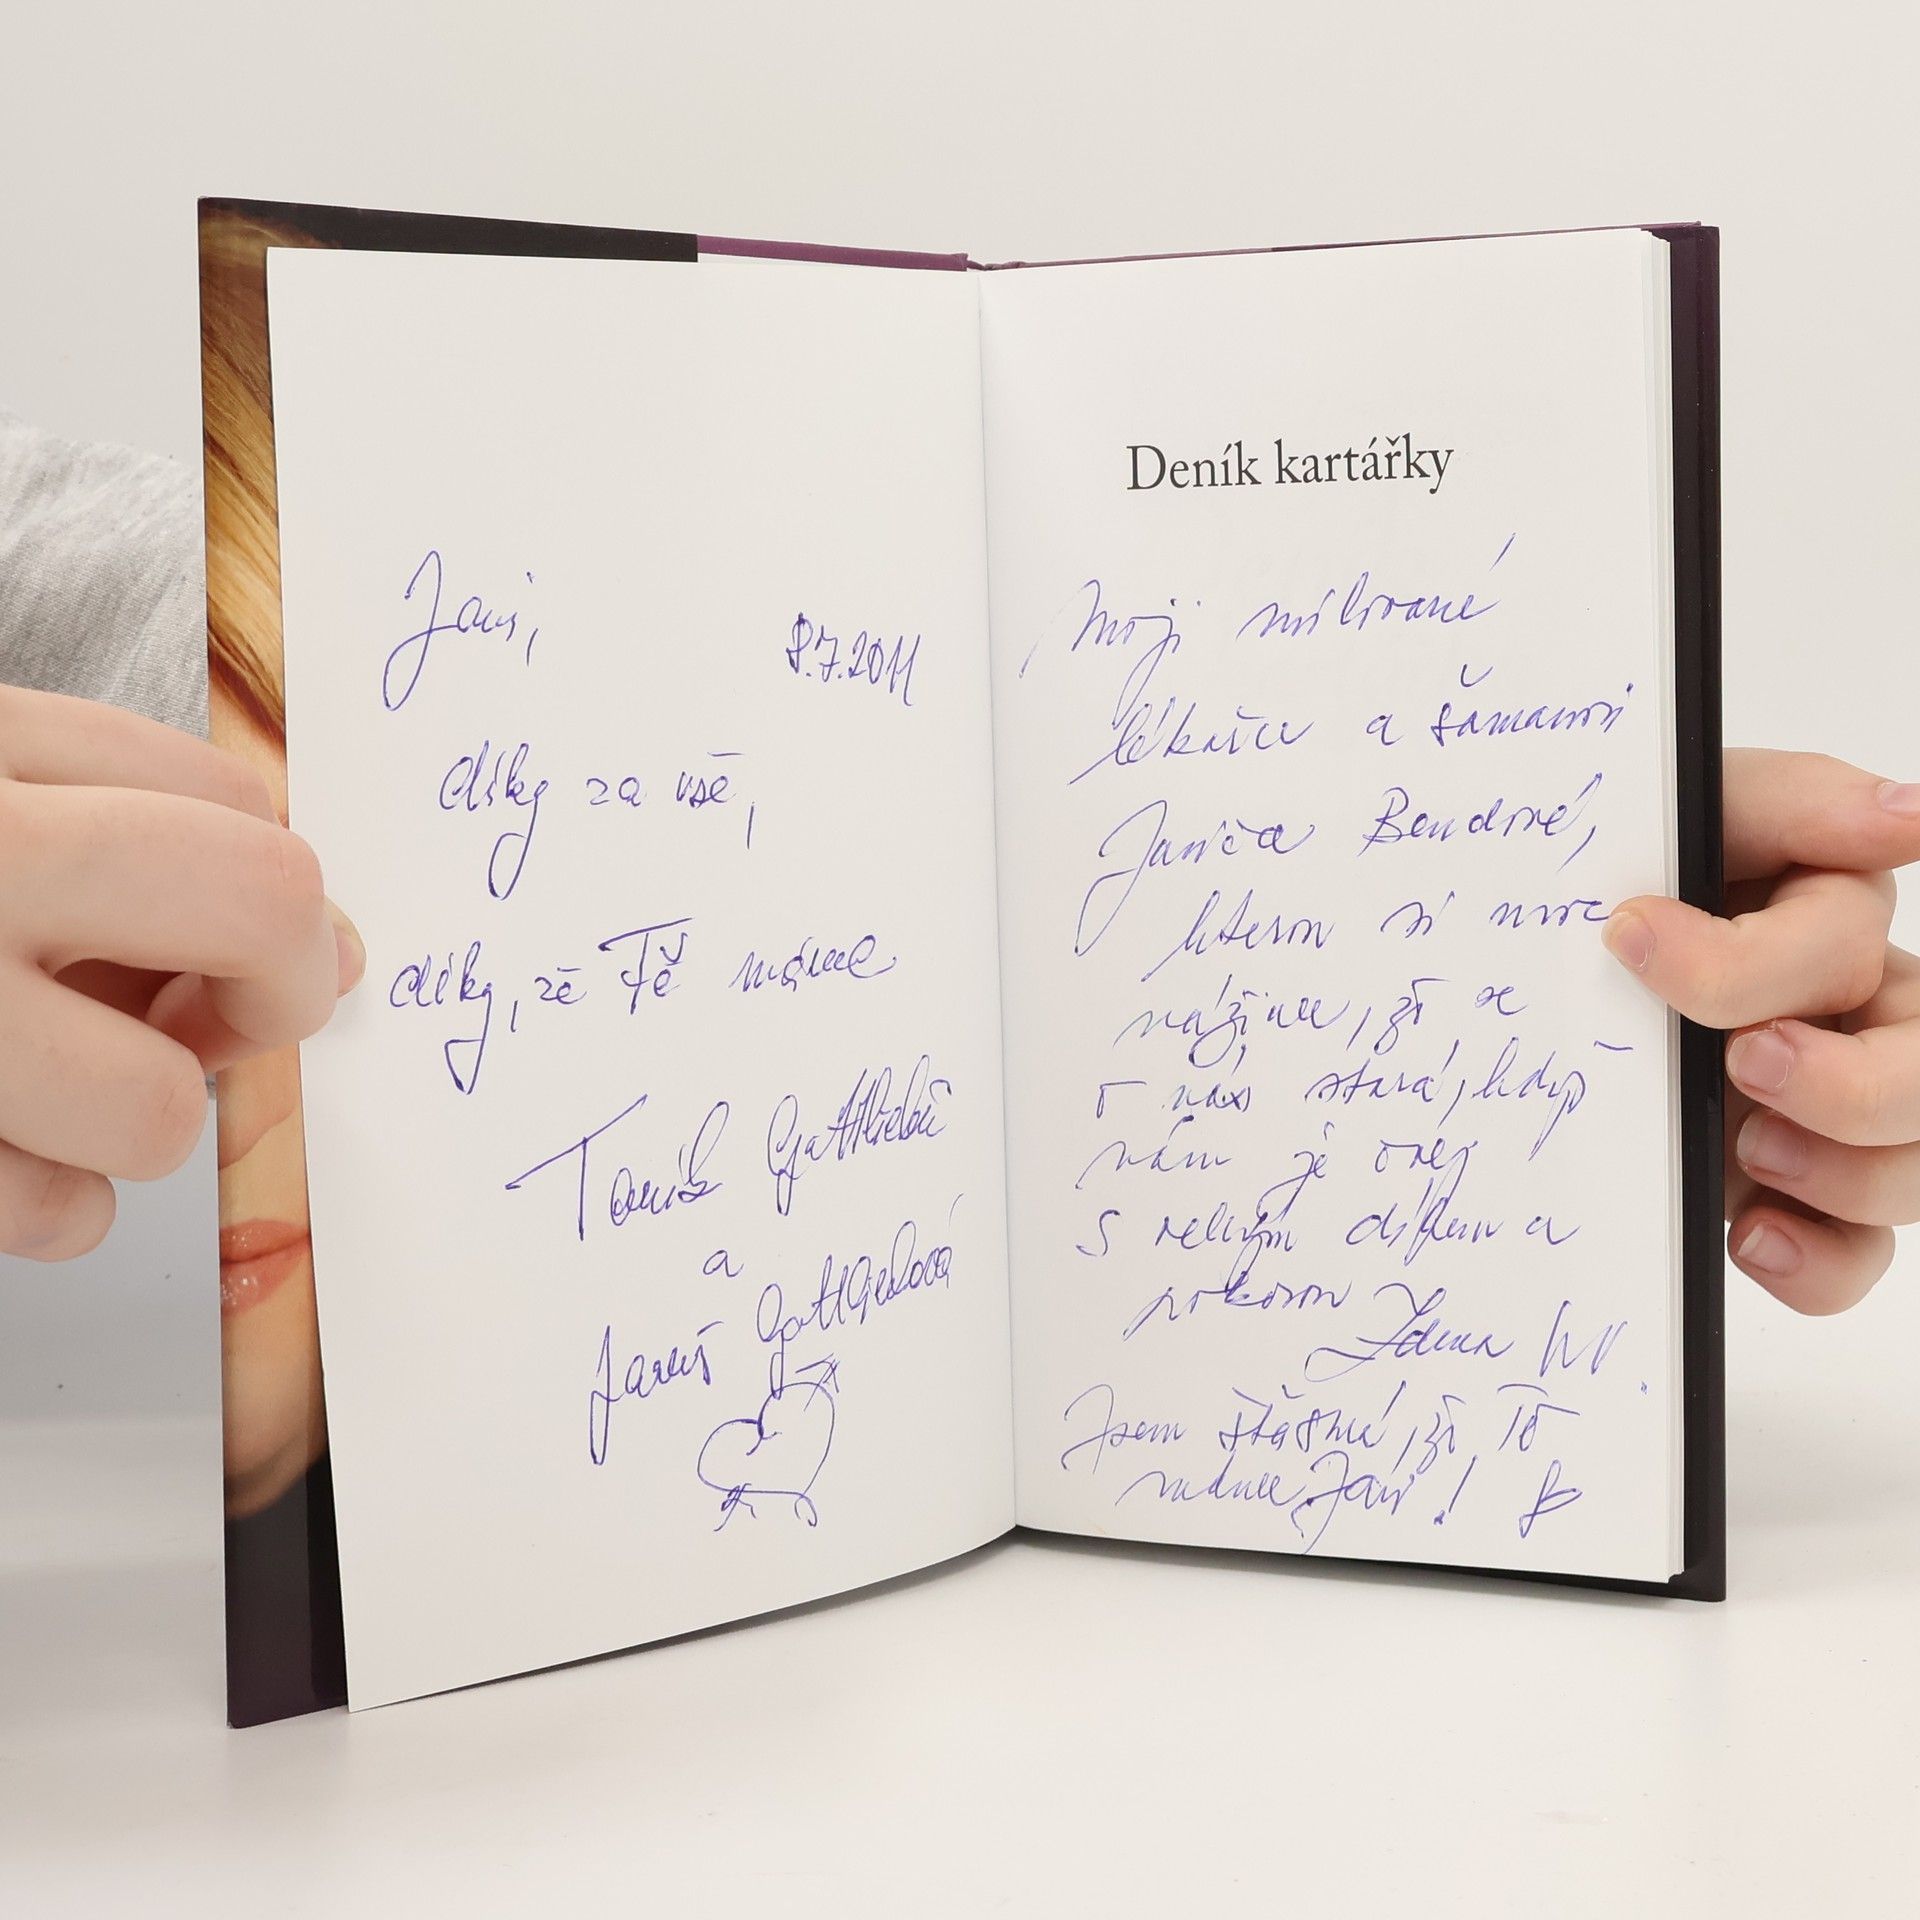 Jani,
8.7.2011
díky za vše,
díky, že Tě máme
Toník Gottlieb
a
Januš Gottliebová
Deník kartářky
Moji milované
lékařce a šamanovi
Janičce Bendové,
kterou si moc
vážíme, že se
o nás stará, když
nám je ouvej
S velkým díkem a
pokorou
Zdena
Jsem šťastná, že Tě
máme Jani!